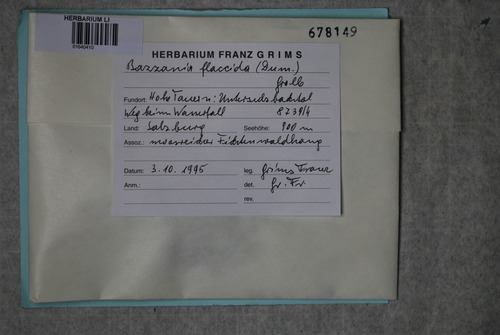 HERBARIUM LI
01640410
678149
HERBARIUM FRANZ GRIMS
Bazzania flaccida (Dum.)
Grolle
Fundort: Hohe Tauern: Untersulzbachtal
Weg beim Wasserfall 8739/4
Land: Salzburg Seehöhe: 900 m
Assoz.: moosreicher Fichtenwaldhang
Datum: 3.10.1995 leg. Grims Franz
Anm.: det. Gr. Fr.
rev.